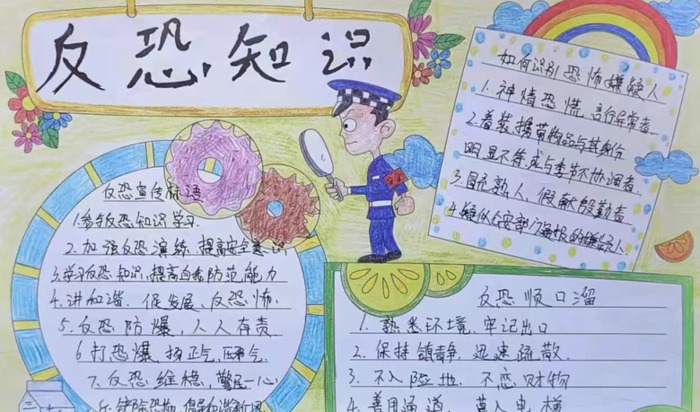 反恐知识
反恐宣传标语
1.参与反恐知识学习
2.加强反恐演练,提高安全意识
3.学习反恐知识,提高自我防范能力
4.讲和谐、促发展、反恐怖
5.反恐防爆,人人有责
6.打恐爆、扬正气、压邪气
7.反恐维稳,警民一心
如何识别恐怖嫌疑人
1.神情恐慌、言行异常者
2.着装、携带物品与其身份
明显不符或与季节不协调者
3.冒充熟人、假献殷勤者
反恐顺口溜
1.熟悉环境、牢记出口
2.保持镇静、迅速疏散
3.不入险地、不恋财物
4.善用通道、莫入电梯